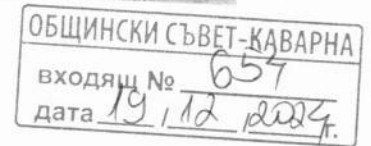 ОБЩИНСКИ СЪВЕТ-КАВАРНА
входящ № 654
дата 19, 12, 2024г.